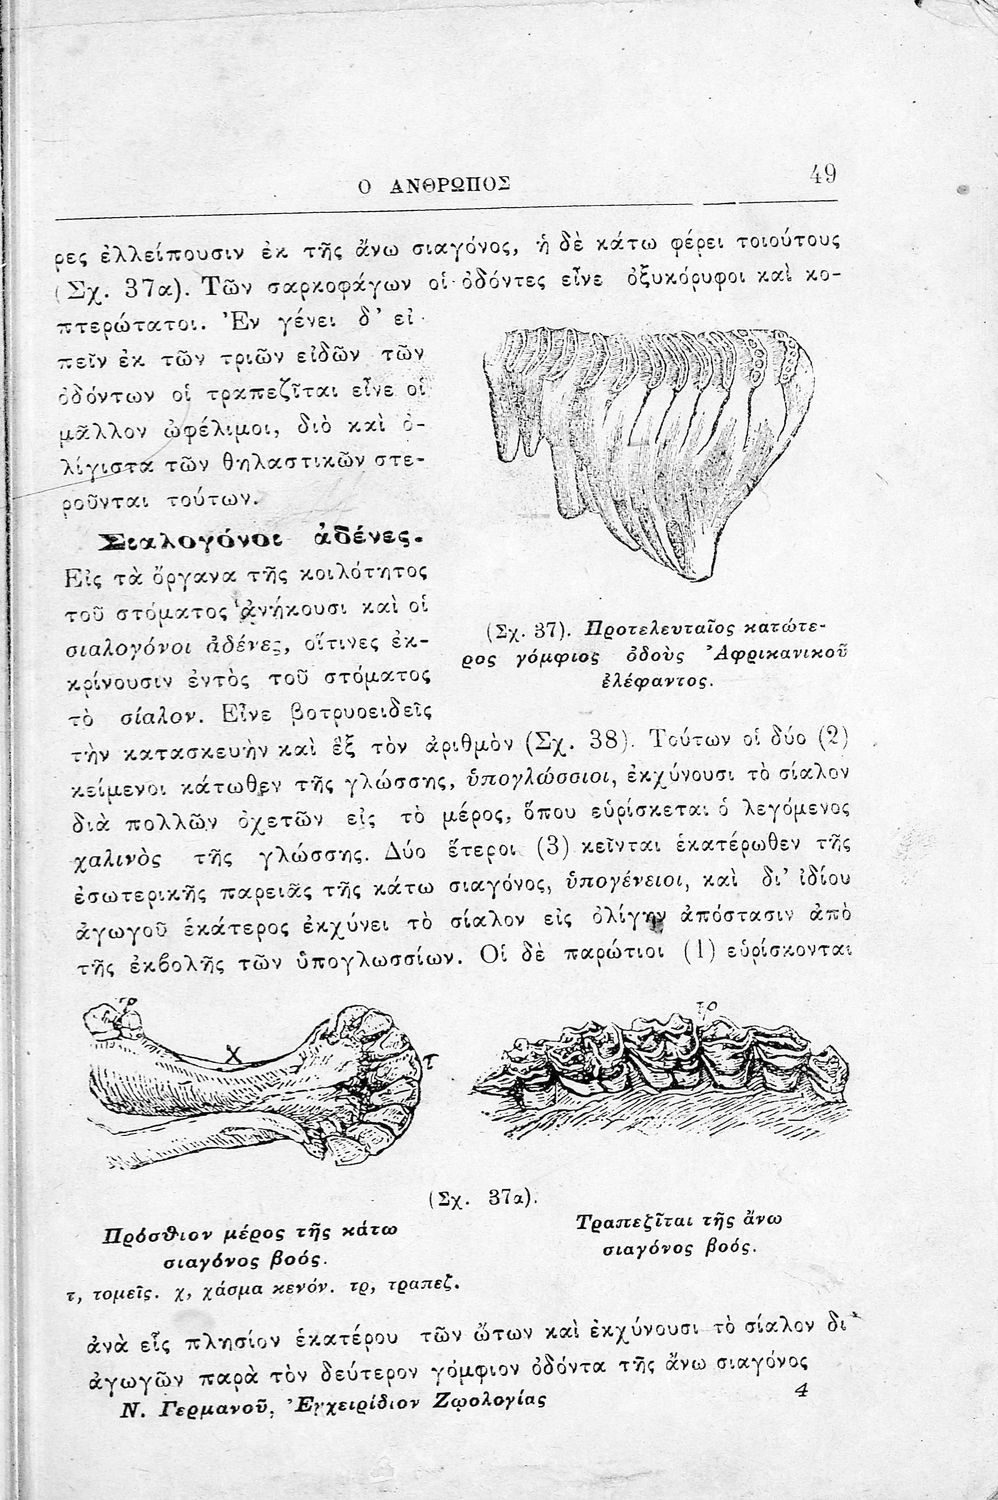 Ο ΑΝΘΡΩΠΟΣ
49
ρες ἐλλείπουσιν ἐκ τῆς ἄνω σιαγόνος, ἡ δὲ κάτω φέρει τοιούτους
(Σχ. 37α). Τῶν σαρκοφάγων οἱ ὀδόντες εἶνε ὀξυκόρυφοι καὶ κο-
πτερώτατοι. Ἐν γένει δ' εἰ-
πεῖν ἐκ τῶν τριῶν εἰδῶν τῶν
ὀδόντων οἱ τραπεζῖται εἶνε οἱ
μᾶλλον ὠφέλιμοι, διὸ καὶ ὀ-
λίγιστα τῶν θηλαστικῶν στε-
ροῦνται τούτων.
Σιαλογόνοι ἀδένες.
Εἰς τὰ ὄργανα τῆς κοιλότητος
τοῦ στόματος ἀνήκουσι καὶ οἱ
σιαλογόνοι ἀδένες, οἵτινες ἐκ-
κρίνουσιν ἐντὸς τοῦ στόματος
τὸ σίαλον. Εἶνε βοτρυοειδεῖς
(Σχ. 37). Προτελευταῖος κατώτε-
ρος γόμφιος ὀδοὺς Ἀφρικανικοῦ
ἐλέφαντος.
τὴν κατασκευὴν καὶ ἓξ τὸν ἀριθμὸν (Σχ. 38). Τούτων οἱ δύο (2)
κείμενοι κάτωθεν τῆς γλώσσης, ὑπογλώσσιοι, ἐκχύνουσι τὸ σίαλον
διὰ πολλῶν ὀχετῶν εἰς τὸ μέρος, ὅπου εὑρίσκεται ὁ λεγόμενος
χαλινὸς τῆς γλώσσης. Δύο ἕτεροι (3) κεῖνται ἑκατέρωθεν τῆς
ἐσωτερικῆς παρειᾶς τῆς κάτω σιαγόνος, ὑπογένειοι, καὶ δι' ἰδίου
ἀγωγοῦ ἑκάτερος ἐκχύνει τὸ σίαλον εἰς ὀλίγην ἀπόστασιν ἀπὸ
τῆς ἐκβολῆς τῶν ὑπογλωσσίων. Οἱ δὲ παρώτιοι (1) εὑρίσκονται
τρ
χ
τ
τρ
(Σχ. 37α).
Πρόσθιον μέρος τῆς κάτω
σιαγόνος βοός.
τ, τομεῖς. χ, χάσμα κενόν. τρ, τραπεζ.
Τραπεζῖται τῆς ἄνω
σιαγόνος βοός.
ἀνὰ εἷς πλησίον ἑκατέρου τῶν ὤτων καὶ ἐκχύνουσι τὸ σίαλον δι'
ἀγωγῶν παρὰ τὸν δεύτερον γόμφιον ὀδόντα τῆς ἄνω σιαγόνος
Ν. Γερμανοῦ, Ἐγχειρίδιον Ζῳολογίας
4